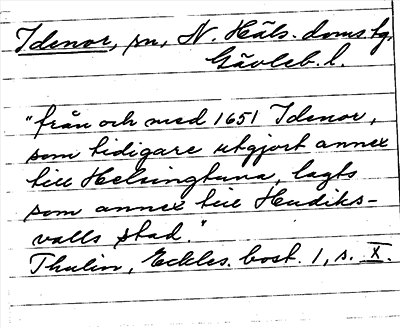 Idenor, sn, N. Häls. doms.lg,
Gävleb. l.
"från och med 1651 Idenor,
som tidigare utgjort annex
till Helsingtuna, lagts
som annex till Hudiks-
valls stad."
Thulin, Eckles. bost. 1, s. X.